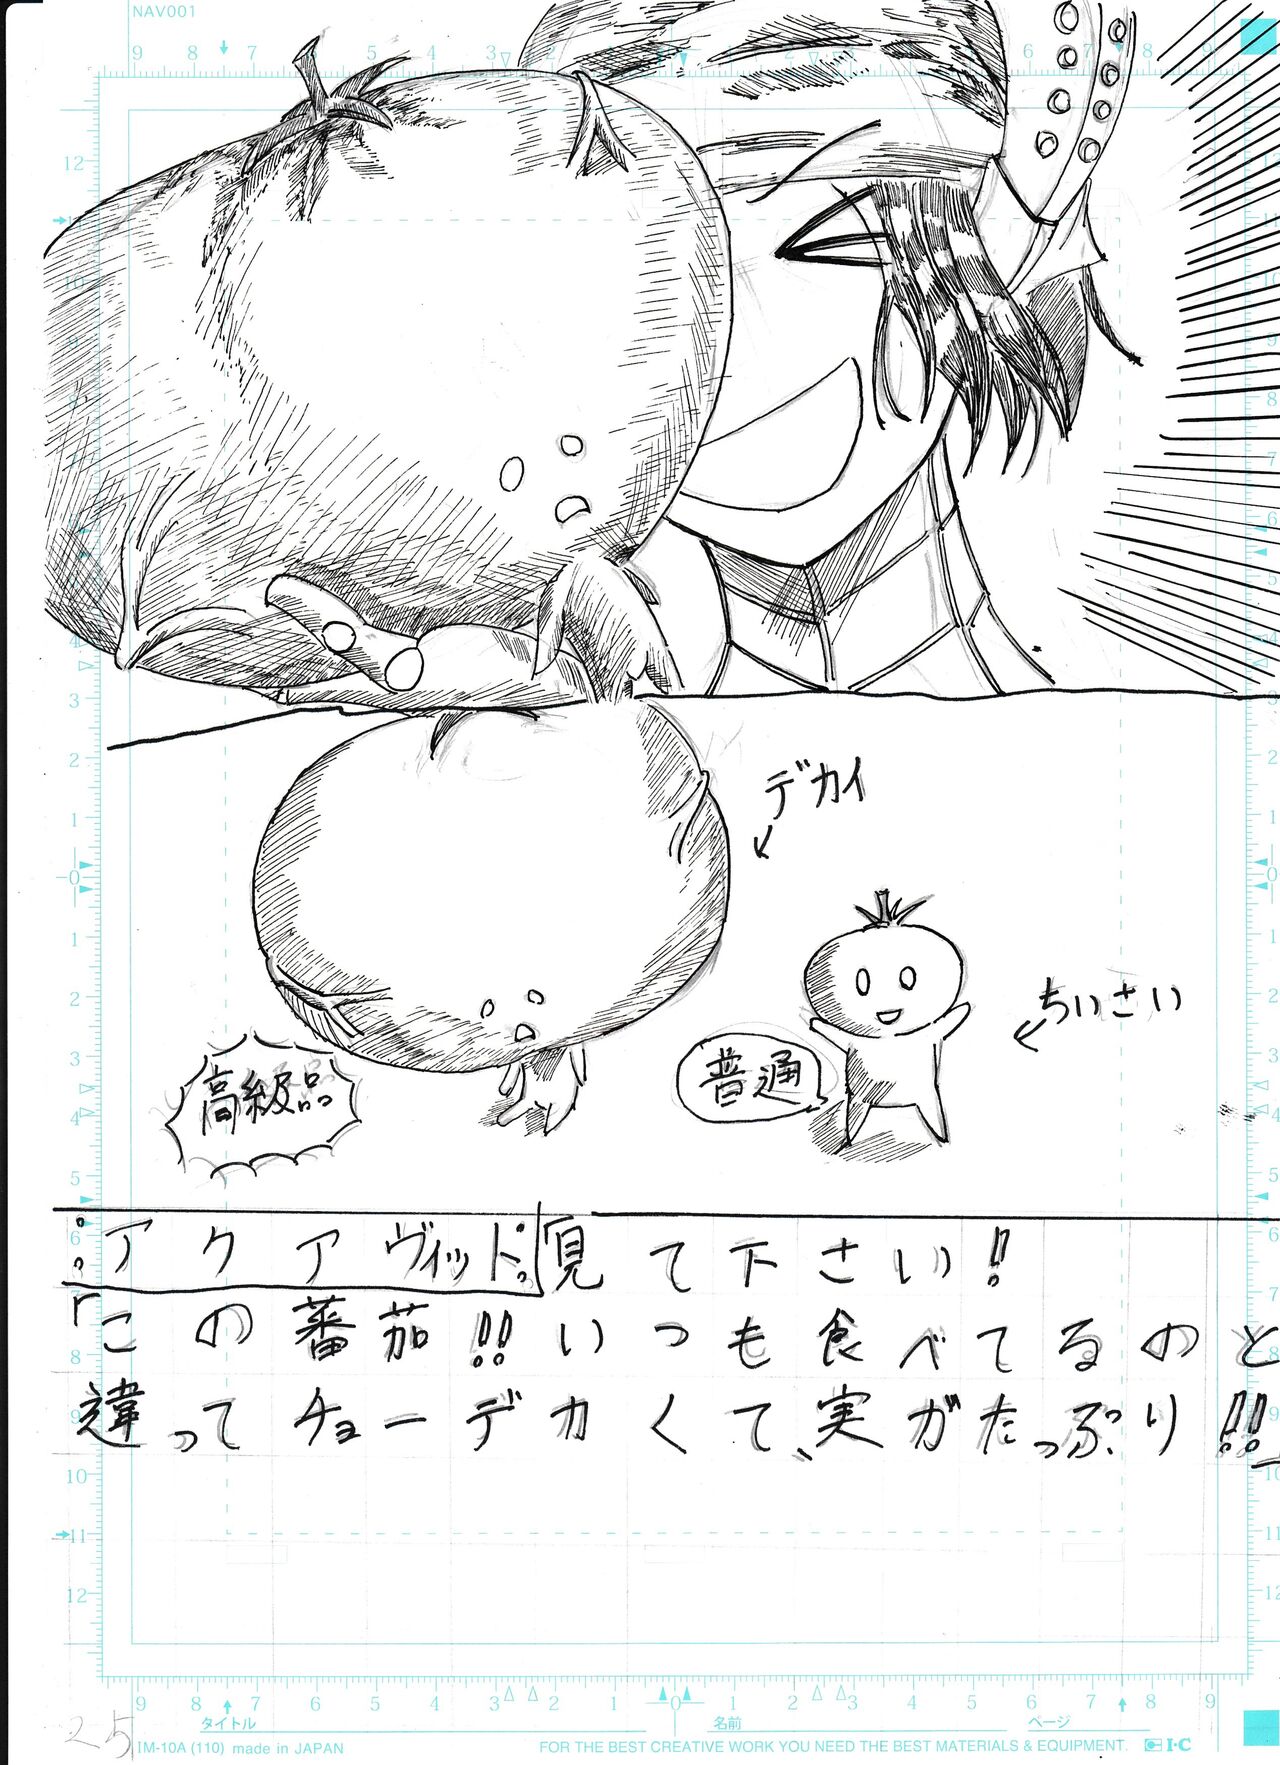 NAV001
デカイ
ちいさい
高級品
普通
:アクアヴィット:「見て下さい!
「この蕃茄!!いつも食べてるのと
違ってチョーデカくて、実がたっぷり!!」
25
タイトル
名前
ページ
IM-10A (110) made in JAPAN
FOR THE BEST CREATIVE WORK YOU NEED THE BEST MATERIALS & EQUIPMENT.
I·C